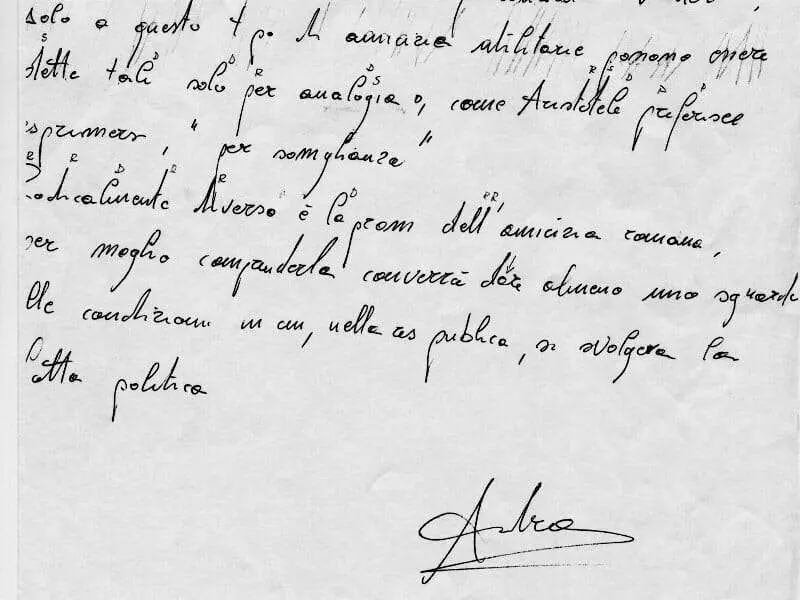 solo a questo tipo di amicizia utilitarie possono essere
dette tali solo per analogia o, come Aristotele preferisce
esprimersi, "per somiglianza"
Radicalmente diverso è la prassi dell'amicizia romana,
per meglio comprenderla converrà dare almeno uno sguardo
alle condizioni in cui, nella res publica, si svolgeva la
lotta politica
Andrea